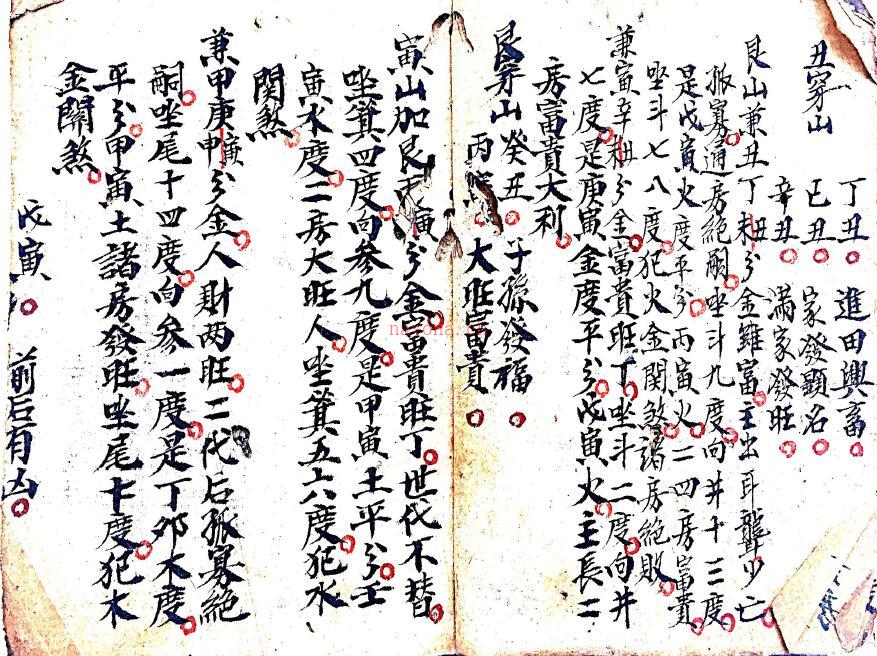 丑穿山
丁丑 進田興畜
己丑 家發顕名
辛丑 滿家發旺
艮山兼丑丁未分金雖富主出耳聾少亡
孤寡通房絕嗣坐斗九度向井十三度
是戊寅火度平分丙寅火二四房富貴
坐斗七八度犯火金関煞諸房絕敗
兼寅辛丑分金富貴旺丁坐斗二度向井
七度是庚寅金度平分戊寅火主長二
房富貴大利
艮穿山 癸丑 子孫發福
丙 大旺富貴
寅山加艮 寅分金富貴旺丁世代不替
坐箕四度向参九度是甲寅土平分壬
寅水度二房大旺人坐箕五六度犯水
関煞
兼甲庚 寅分金人財两旺二代后孤寡絕
嗣坐尾十四度向参一度是丁卯木度
平分甲寅土諸房發旺坐尾十度犯木
金關煞
戊寅 前后有凶